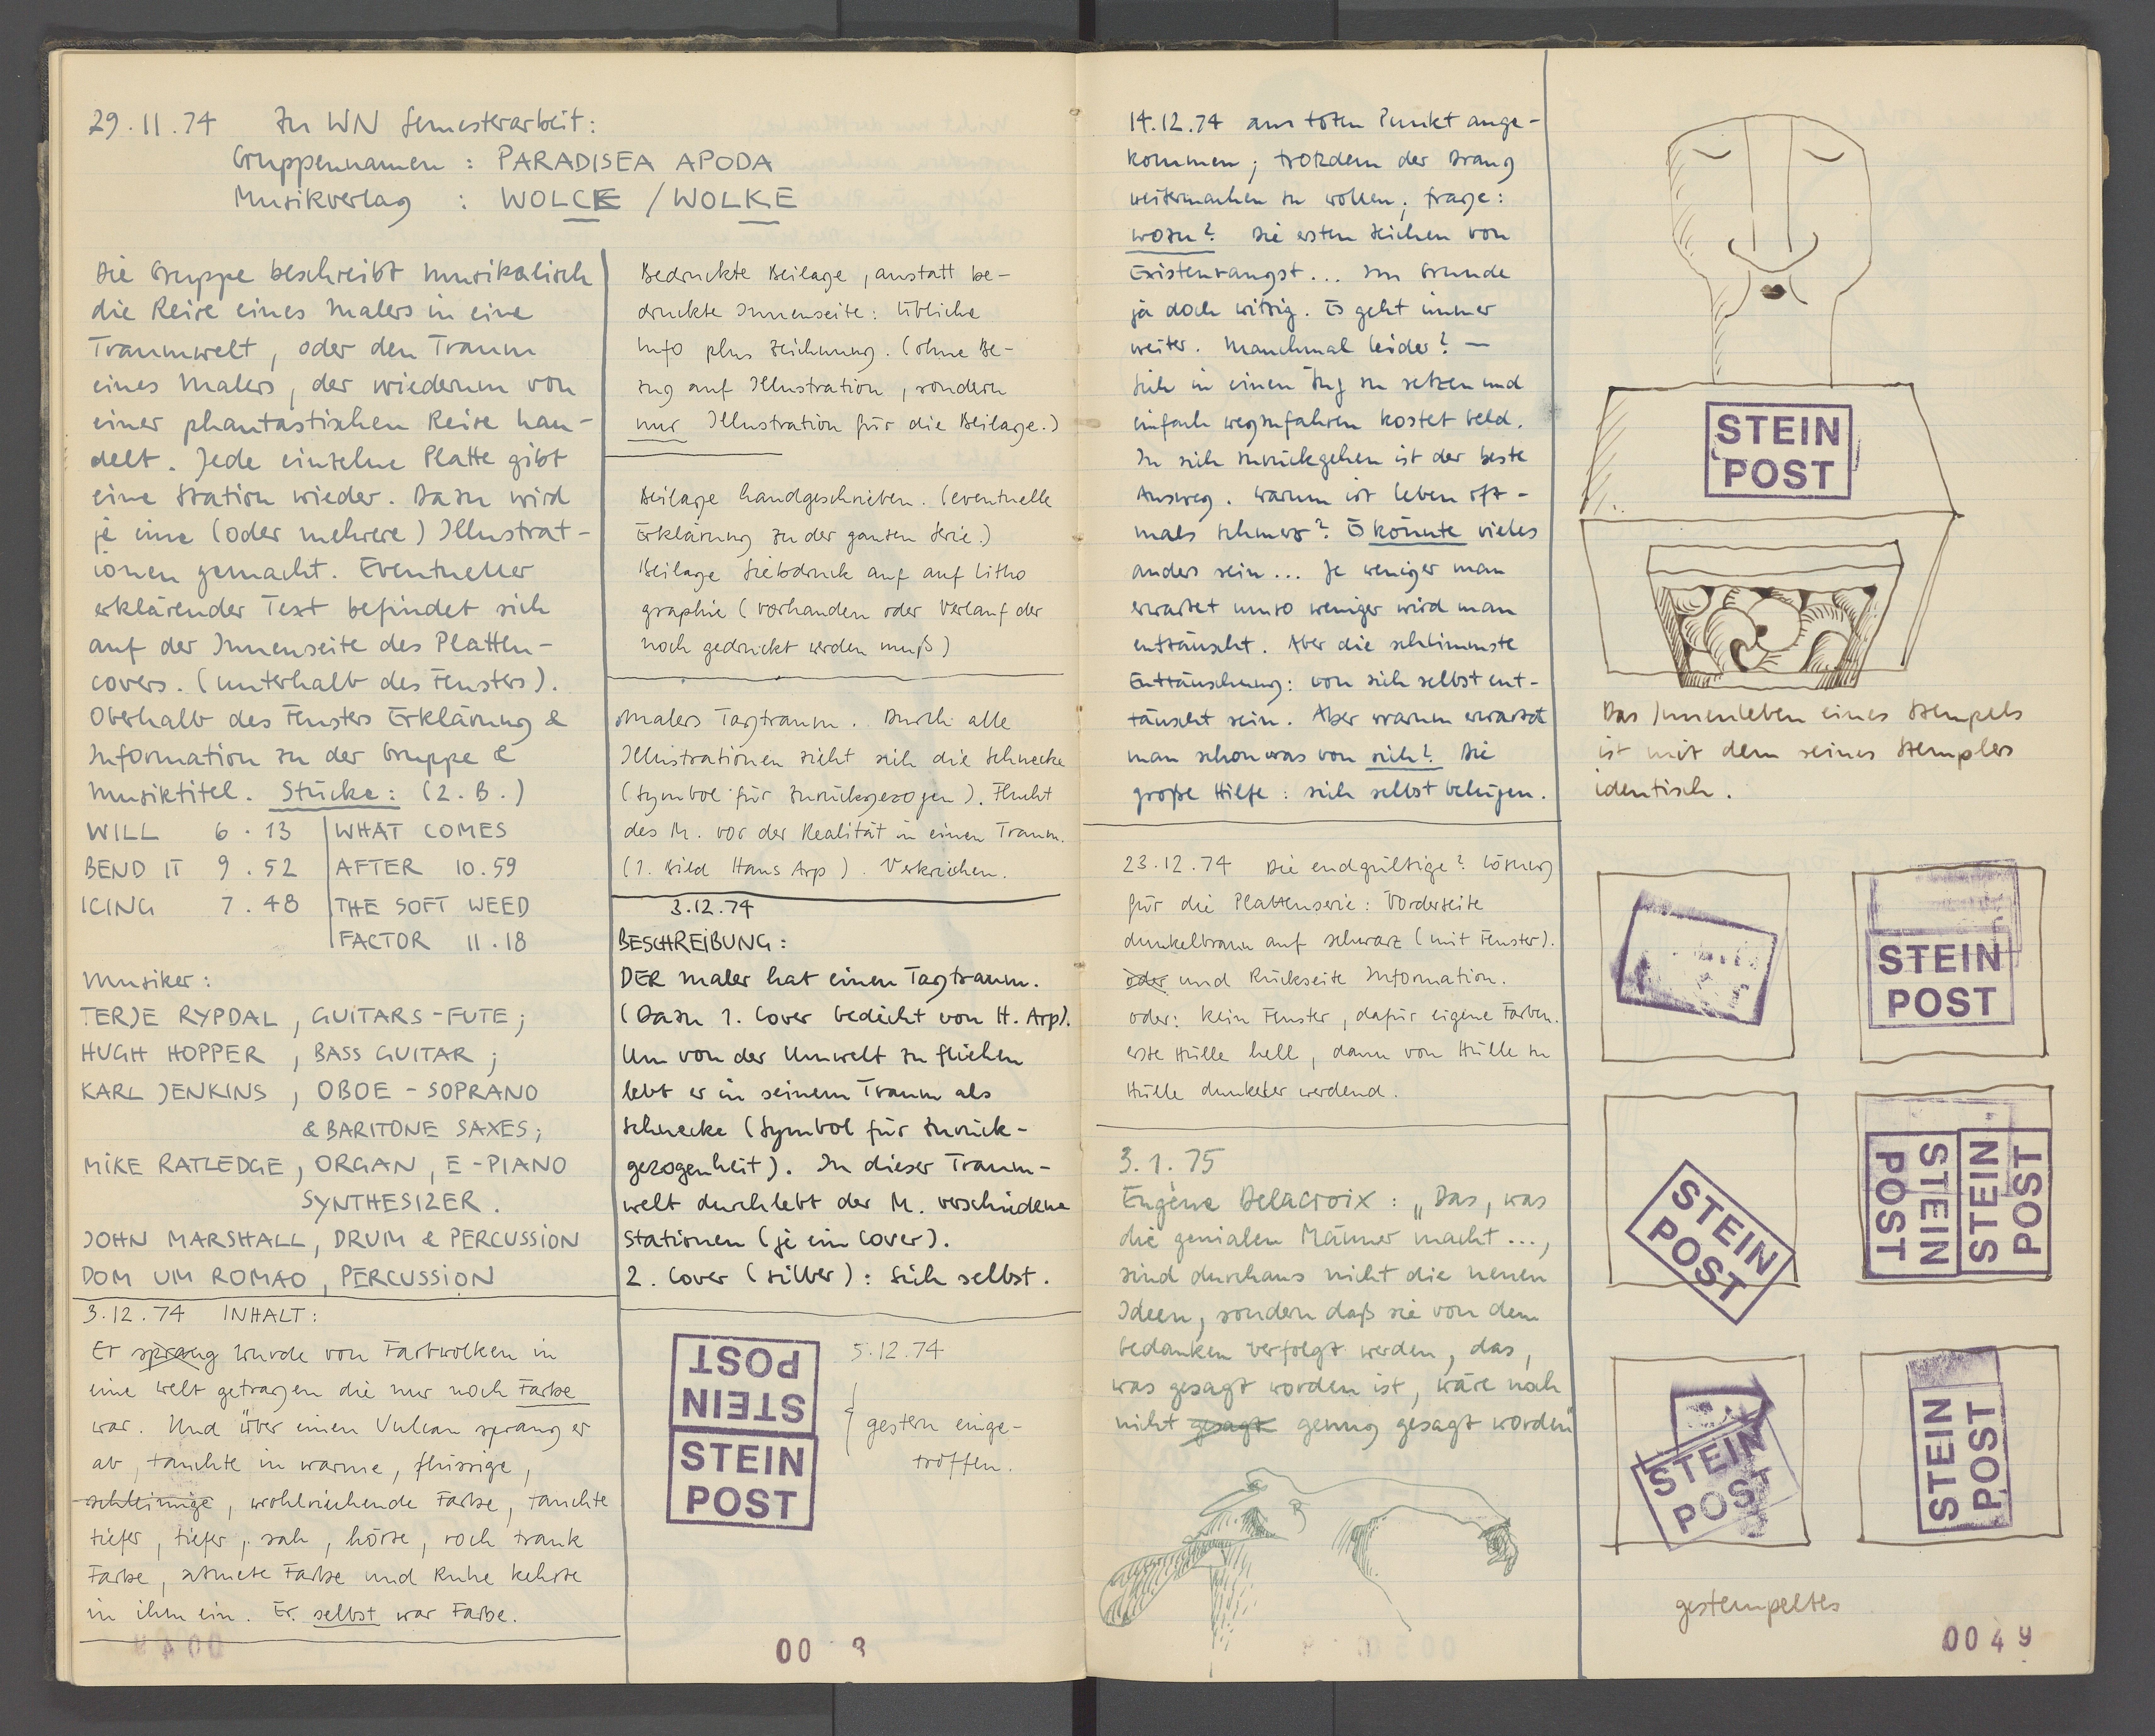 29.11.74 Zu WN Semesterarbeit:
Gruppennamen : PARADISEA APODA
Musikverlag : WOLCK / WOLKE
Die Gruppe beschreibt musikalisch
die Reise eines Malers in eine
Traumwelt, oder den Traum
eines Malers, der wiederum von
einer phantastischen Reise han-
delt. Jede einzelne Platte gibt
eine Station wieder. Dazu wird
je eine (oder mehrere) Illustrat-
ionen gemacht. Eventueller
erklärender Text befindet sich
auf der Innenseite des Platten-
covers. (unterhalb des Fensters).
Oberhalb des Fensters Erklärung &
Information zu der Gruppe &
Musiktitel. Stücke: (z.B.)
WILL 6.13
BEND IT 9.52
ICING 7.48
WHAT COMES
AFTER 10.59
THE SOFT WEED
FACTOR 11.18
Musiker:
TERJE RYPDAL, GUITARS-FUTE;
HUGH HOPPER, BASS GUITAR;
KARL JENKINS, OBOE - SOPRANO
& BARITONE SAXES;
MIKE RATLEDGE, ORGAN, E-PIANO
SYNTHESIZER.
JOHN MARSHALL, DRUM & PERCUSSION
DOM UM ROMAO, PERCUSSION
3.12.74 INHALT:
Er sprang wurde von Farbwolken in
eine Welt getragen die nur noch Farbe
war. Und über einen Vulcan sprang er
ab, tauchte in warme, flüssige,
schleimige, wohlriechende Farbe, tauchte
tiefer, tiefer, sah, hörte, roch trank
Farbe, atmete Farbe und Ruhe kehrte
in ihm ein. Er selbst war Farbe.
Bedruckte Beilage, anstatt be-
druckte Innenseite: Übliche
Info plus Zeichnung. (ohne Be-
zug auf Illustration, sondern
nur Illustration für die Beilage.)
Beilage handgeschrieben. (eventuelle
Erklärung zu der ganzen Serie.)
Beilage Siebdruck auf auf Litho
graphie (vorhanden oder Verlauf der
noch gedruckt werden muß)
Malers Tagtraum. Durch alle
Illustrationen zieht sich die Schnecke
(Symbol für zurückgezogen). Flucht
des M. vor der Realität in einen Traum.
(1. Bild Hans Arp). Verkriechen.
3.12.74
BESCHREIBUNG:
DER Maler hat einen Tagtraum.
(Dazu 1. Cover Gedicht von H. Arp).
Um von der Umwelt zu fliehen
lebt er in seinem Traum als
Schnecke (Symbol für Zurück-
gezogenheit). In dieser Traum-
welt durchlebt der M. verschiedene
Stationen (je ein Cover).
2. Cover (silber): Sich selbst.
STEIN
POST
STEIN
POST
5.12.74
gestern einge-
troffen.
00 8
14.12.74 am toten Punkt ange-
kommen; trotzdem der Drang
weitermachen zu wollen; Frage:
wozu? Die ersten Zeichen von
Existenzangst... Im Grunde
ja doch witzig. Es geht immer
weiter. Manchmal leider? —
Sich in einen Zug zu setzen und
einfach wegzufahren kostet Geld.
In sich zurückgehen ist der beste
Ausweg. Warum ist Leben oft-
mals Schmerz? Es könnte vieles
anders sein... Je weniger man
erwartet umso weniger wird man
enttäuscht. Aber die schlimmste
Enttäuschung: von sich selbst ent-
täuscht sein. Aber warum erwartet
man schon was von sich? Die
große Hilfe: sich selbst belügen.
23.12.74 Die endgültige? Lösung
für die Plattenserie: Vorderseite
dunkelbraun auf schwarz (mit Fenster).
oder und Rückseite Information.
oder: kein Fenster, dafür eigene Farben.
erste Hülle hell, dann von Hülle zu
Hülle dunkeler werdend.
3.1.75
Eugène Delacroix: „Das, was
die genialen Männer macht...,
sind durchaus nicht die neuen
Ideen, sondern daß sie von dem
Gedanken verfolgt werden, das,
was gesagt worden ist, wäre noch
nicht gesagt genug gesagt worden"
STEIN
POST
Das Innenleben eines Stempels
ist mit dem seines Stemplers
identisch.
STEIN
POST
STEIN
POST
STEIN
POST
STEIN
POST
STEIN
POST
STEIN
POST
gestempeltes
0049